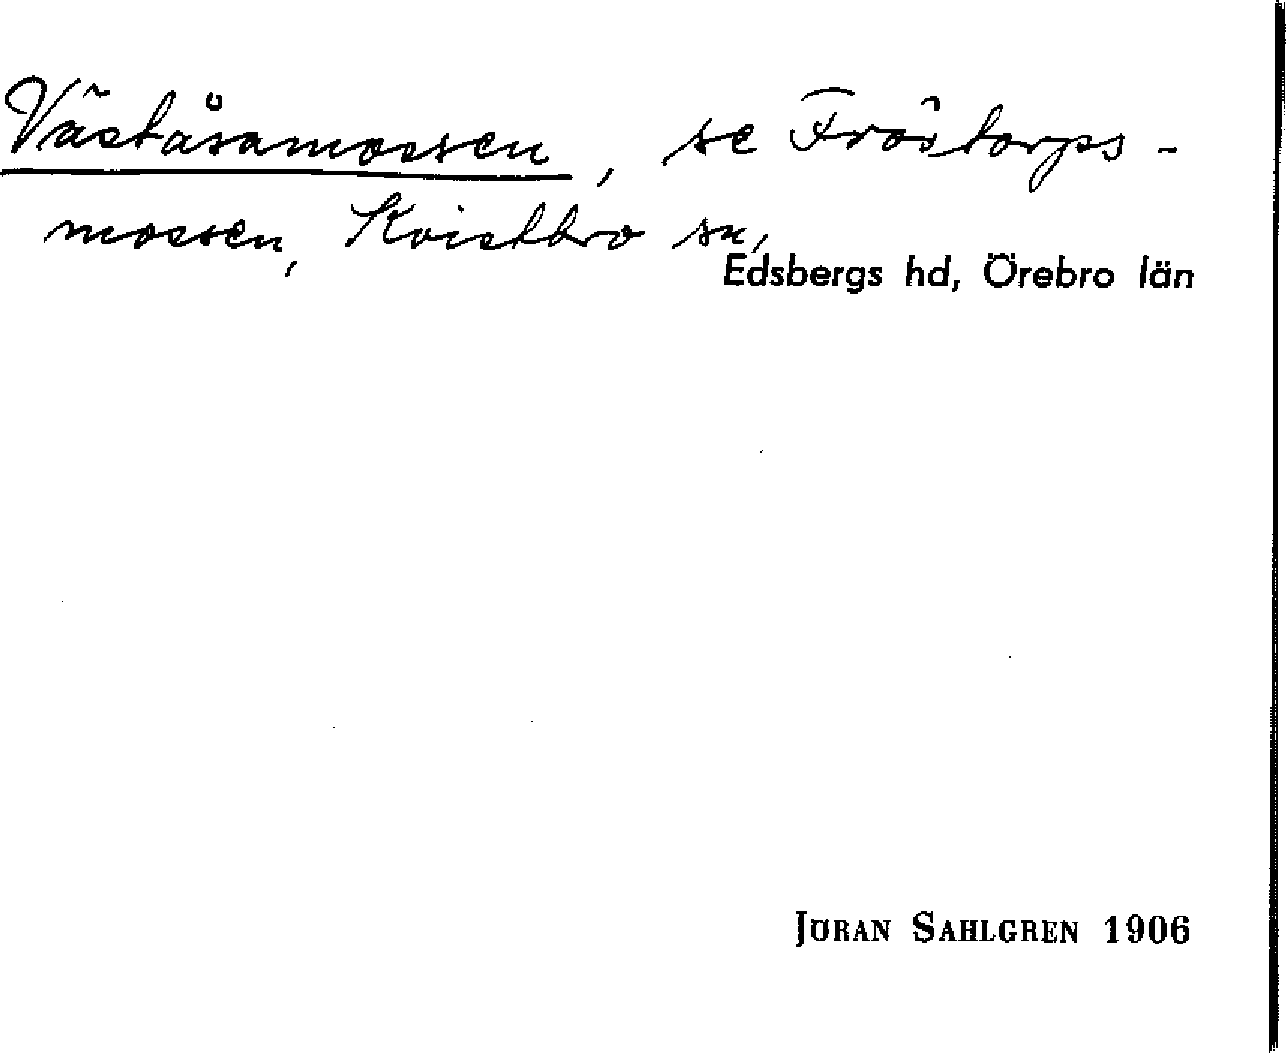 Väståsamossen, se Fröstorps-
mossen, Kvistbro sn,
Edsbergs hd, Örebro län
JÖRAN SAHLGREN 1906